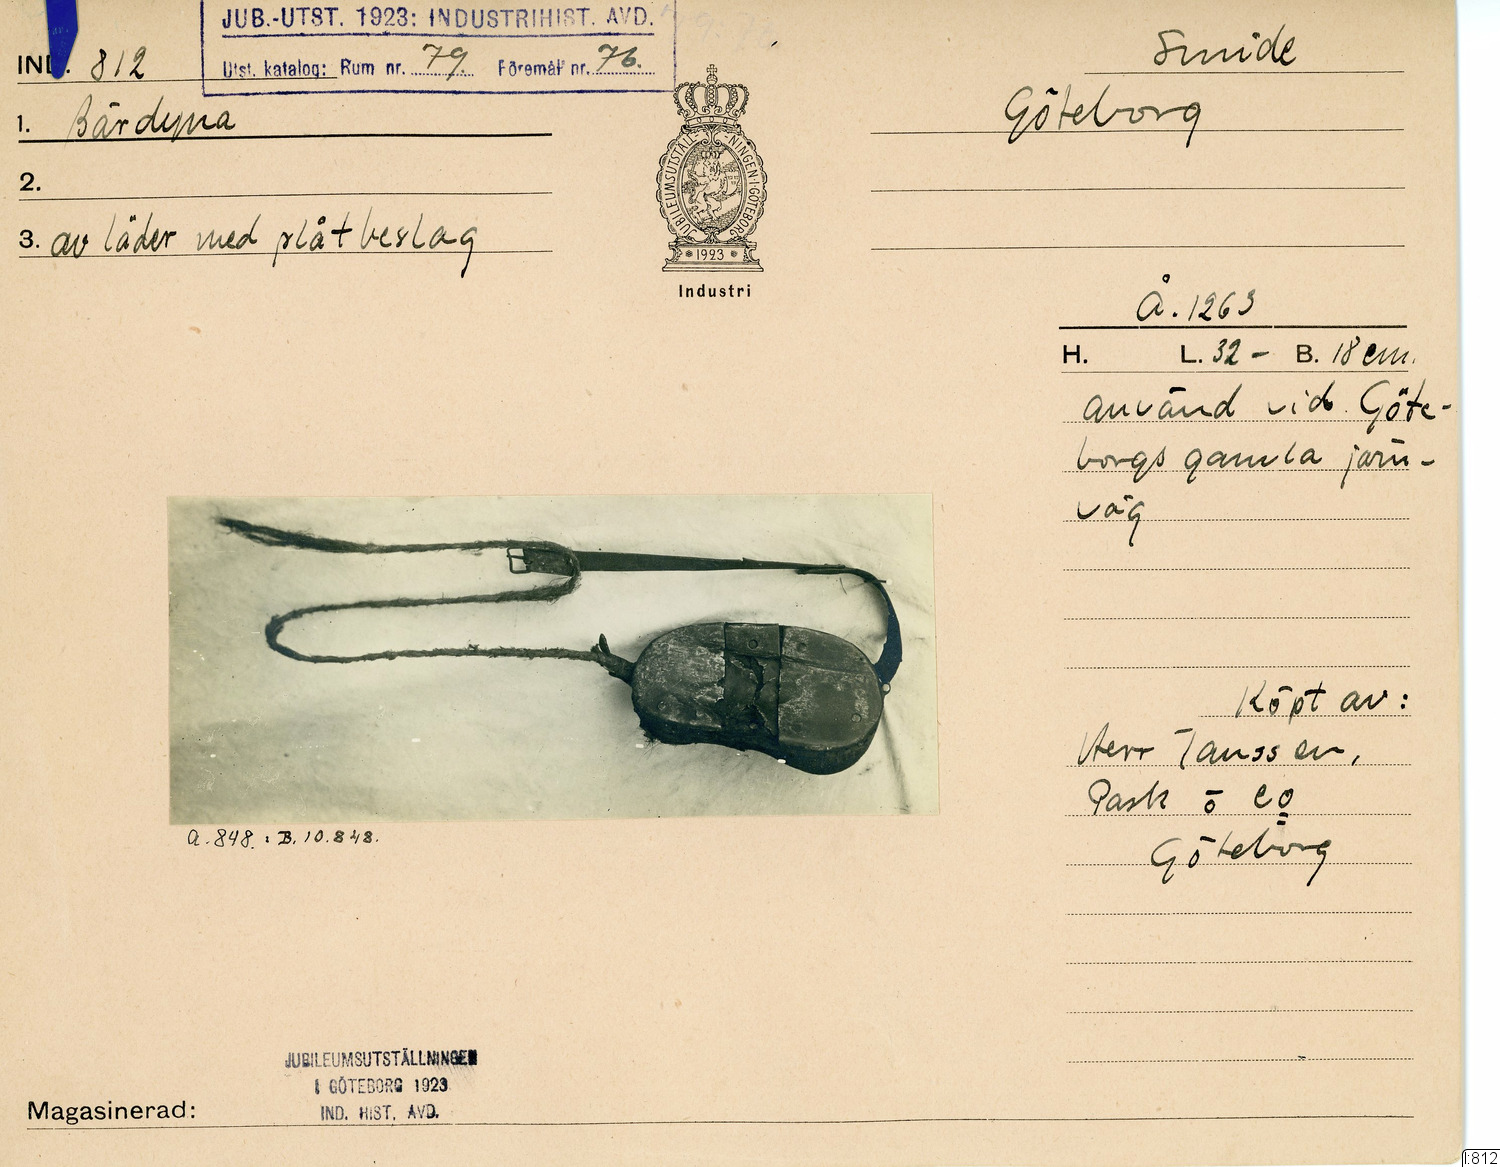 JUB.-UTST. 1923: INDUSTRIHIST. AVD.
Utst. katalog: Rum nr. 79. Föremål nr. 76.
IND. 812
1. Bärdyna
2.
3. av läder med plåtbeslag
JUBILEUMSUTSTÄLLNINGEN·I·GÖTEBORG
1923
Industri
Smide
Göteborg
Å. 1263
H. L. 32 - B. 18 cm.
använd vid Göte-
borgs gamla järn-
väg
Köpt av:
Herr Janssen,
Park o Co
Göteborg
A. 848. : B. 10.848.
JUBILEUMSUTSTÄLLNINGEN
I GÖTEBORG 1923
IND. HIST. AVD.
Magasinerad:
I:812